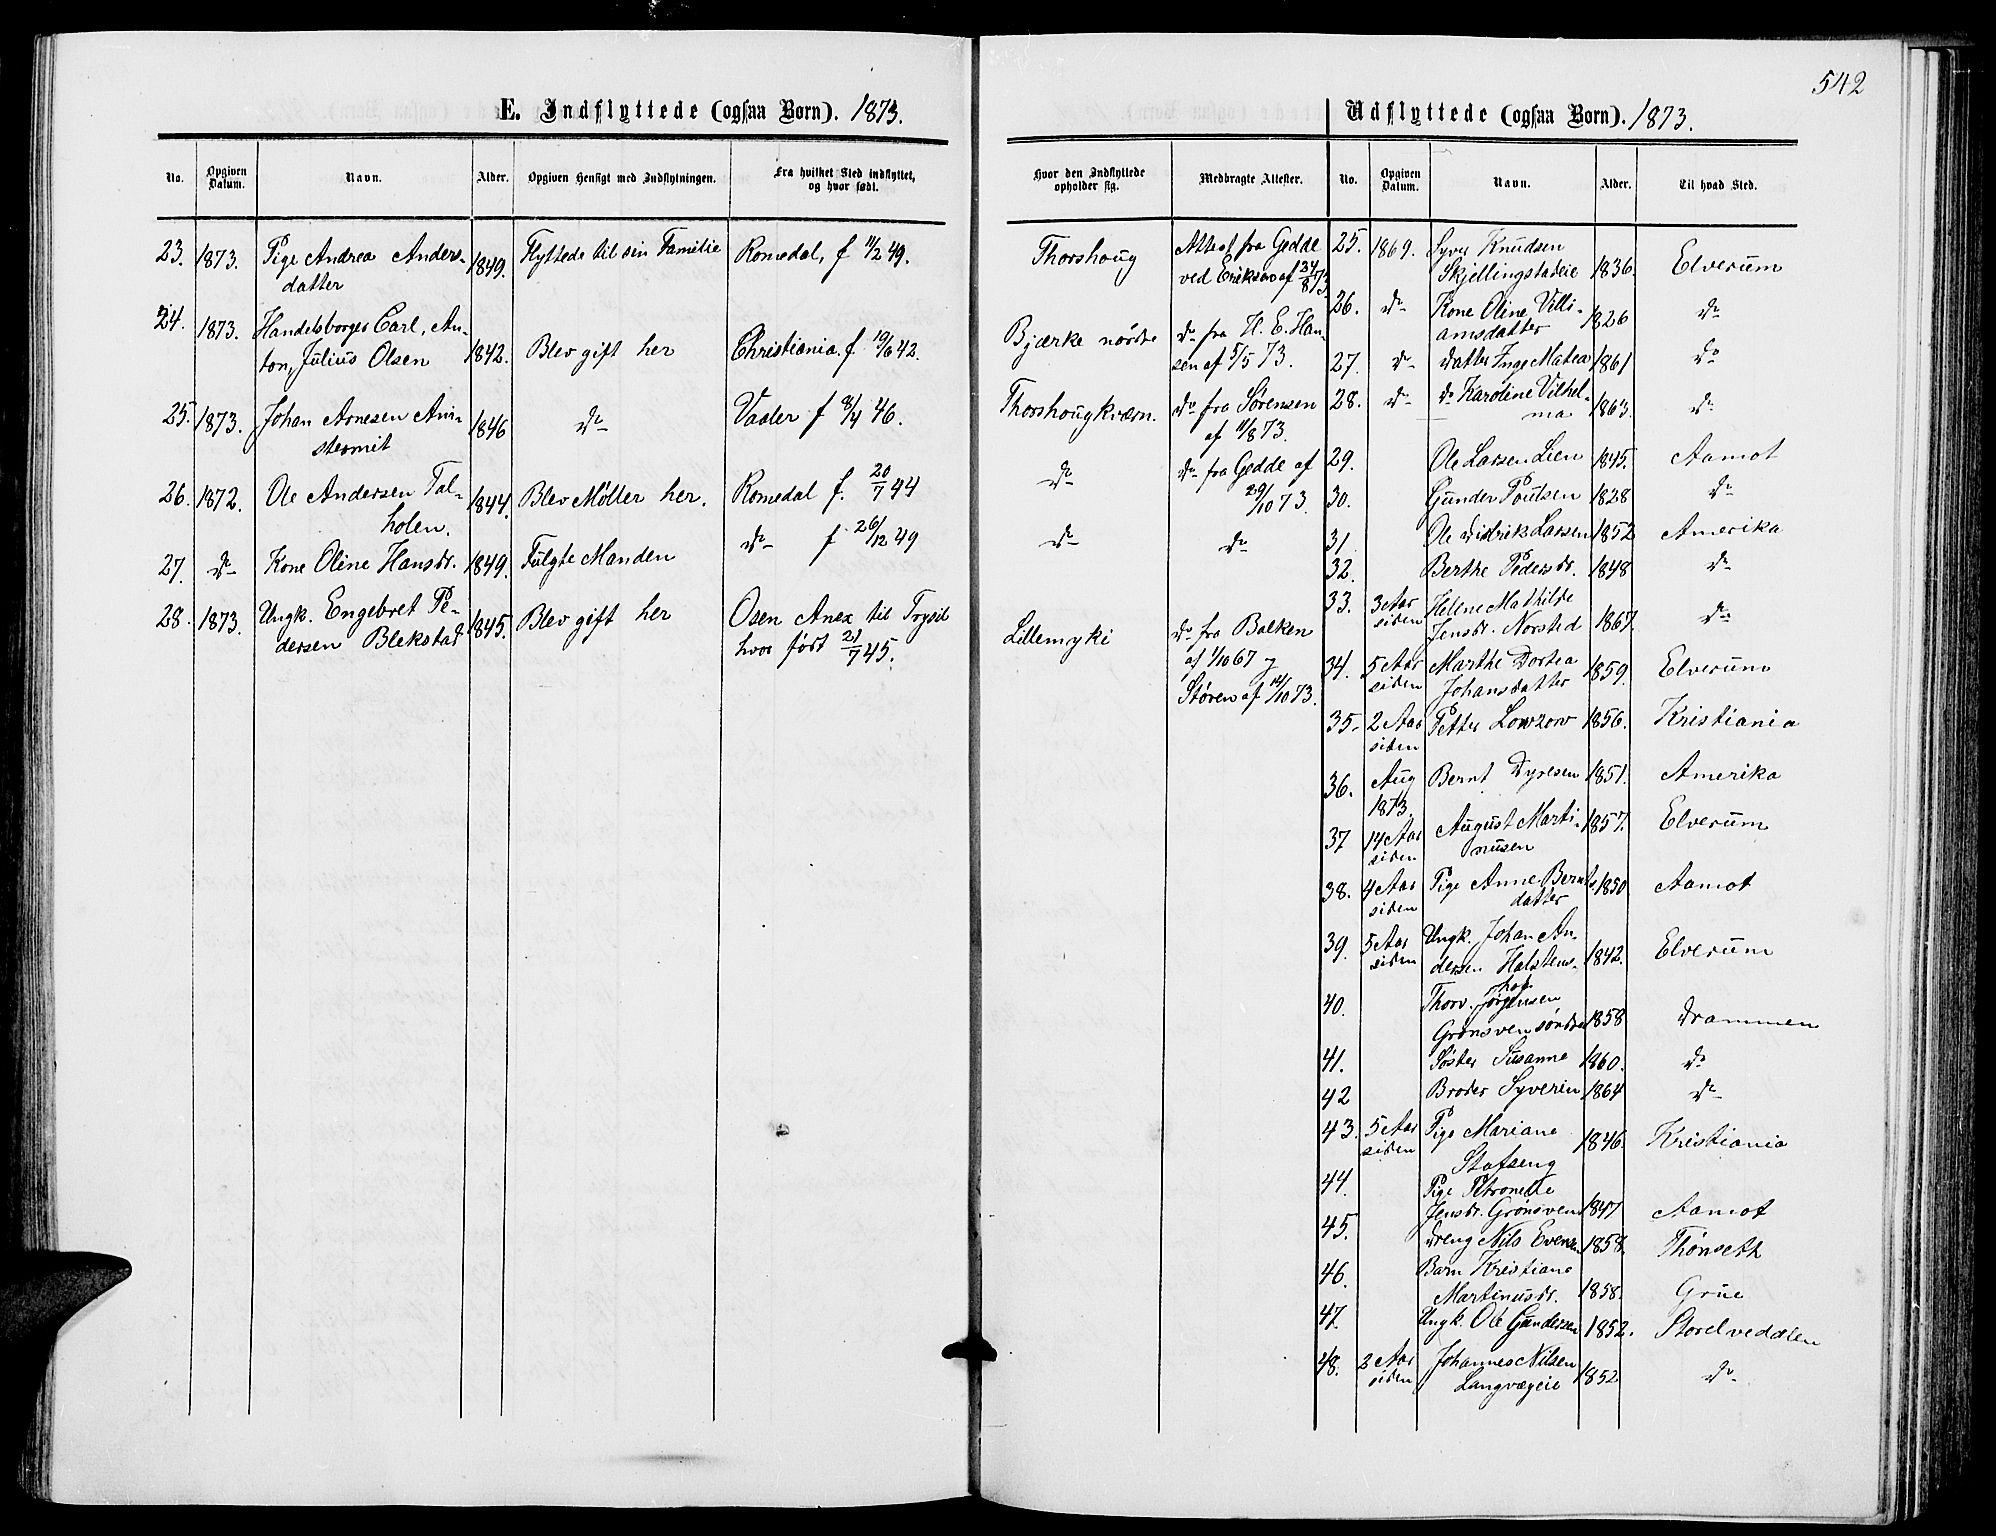 542
E. Indflyttede (ogsaa Børn). 1873.
No.
Opgiven Datum.
Navn.
Alder.
Opgiven Hensigt med Indflytningen.
Fra hvilket Sted indflyttet, og hvor født.
Hvor den Indflyttede opholder sig.
Medbragte Attester.
23. 1873. Pige Andrea Anders- 1849. Flyttede til sin Familie Romedal, f 11/2 49. Thorshoug Attest fra Gedde
datter ved Eriksen af 24/8 73
24. 1873. Handelsborger Carl, An- Bjærke nordre do fra H. E. Han-
ton, Julius Olsen 1842. Blev gift her Christiania. f 19/6 42. sen af 5/5 73.
25. 1873. Johan Arnesen Am- 1846 do Vaaler f 8/4 46. Thorshougkværn. do fra Sørensen
stermit af 11/8 73.
26. 1872. Ole Andersen Tal- 1844. Blev Møller her. Romedal f. 20/7 44 do do fra Gedde af
holen. 29/10 73.
27. do Kone Oline Hansdr. 1849. Fulgte Manden do f 26/12 49 do do
28. 1873. Ungk. Engebret Pe- 1845. Blev gift her Osen Anex til Trysil Lillemyki do fra Balken
dersen Blekstad hvor født 21/7 45. af 1/10 67 og
Støren af 14/10 73.
Udflyttede (ogsaa Børn). 1873.
No.
Opgiven Datum.
Navn.
Alder.
Til hvad Sted.
25. 1869. Syver Knudsen
Skjellingstadeie 1836. Elverum
26. do Kone Oline Villi- 1826 do
amsdatter
27. do Datter Inge Matea 1861 do
28. do do Karoline Vilhel- 1863. do
ma
29. Ole Larsen Lien 1845. Aamot
30. Gunder Poulsen 1828 do
31 Ole Didrik Larsen 1852 Amerika
32. Berthe Pedersdr. 1848 do
33. 3 Aar Helene Mathilde
siden Jensdr. Norsted 1867. do
34. 5 Aar Marthe Dortea 1859. Elverum
siden Johansdatter
35. 2 Aar Petter Lowzow 1856. Kristiania
siden
36. Aug Bernt Dyresen 1851. Amerika
1873.
37 14 Aar August Marti- 1857. Elverum
siden nusen
38. 4 Aar Pige Anne Bernts 1850 Aamot
siden datter
39. 5 Aar Ungk. Johan An-
siden dersen Halstens- 1842. Elverum
hof
40. Thorv. Jørgensen
Grønsven søndre 1858 Drammen
41. Søster Susanne 1860. do
42 Broder Syverin 1864 do
43. 5 Aar Pige Mariane 1846 Kristiania
siden Stafseng
44. Pige Petronelle
Jensdr. Grønsven 1847 Aamot
45. Dreng Nils Evensen 1858. Thønseth
46. Barn Kristiane
Martinusdr. 1858. Grue
47. Ungk. Ole Gundersen 1852. Storelvedalen
48. 2 Aar Johannes Nilsen
siden Langvægeie 1852 do